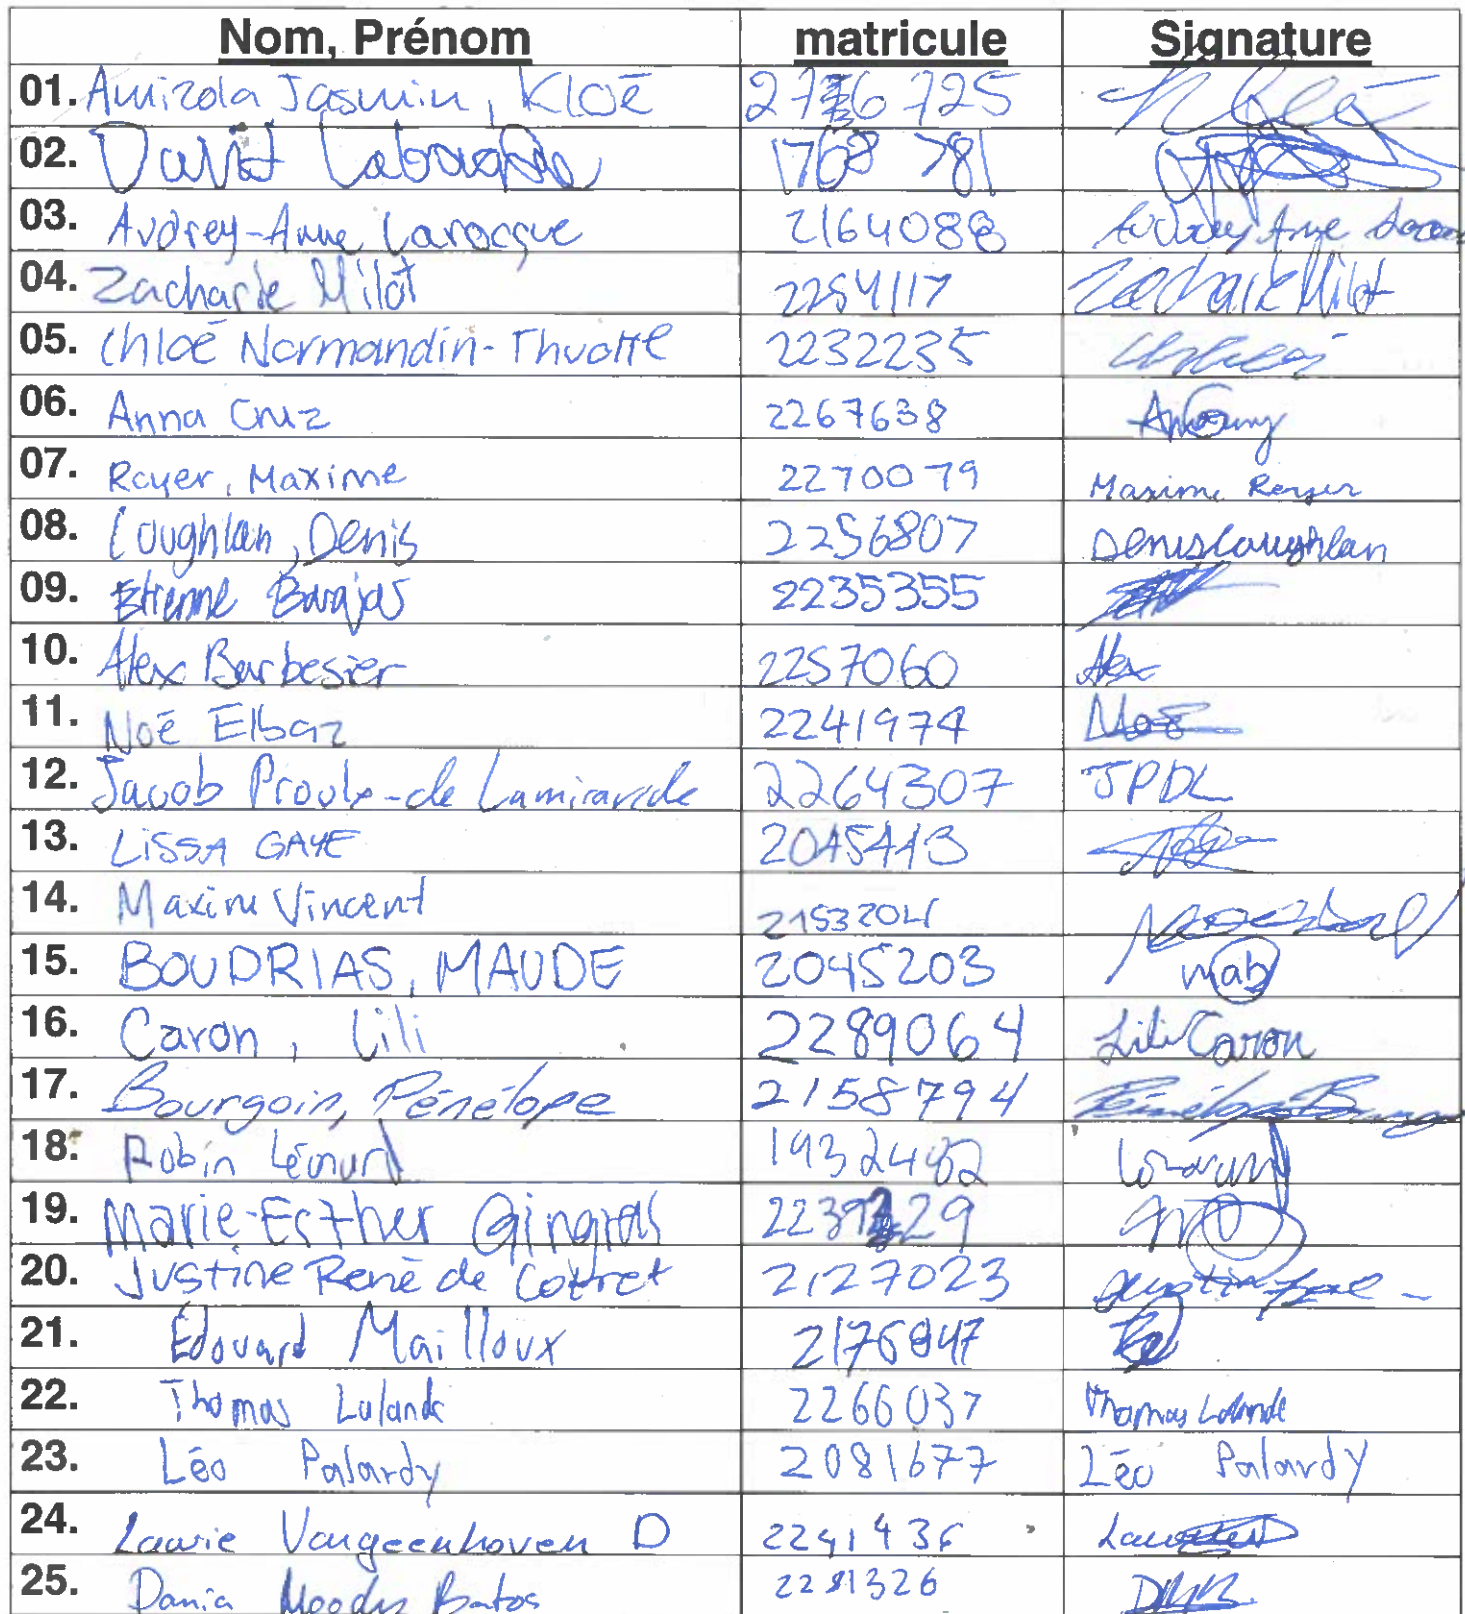 Nom, Prénom matricule Signature
01. Amizola Jasmin, Kloé 2776725 Kloé
02. David 1768781
03. Audrey-Anne Larocque 2164088 Audrey Anne
04. Zacharie Milot 2254117 Zacharie Milot
05. Chloé Normandin-Thuotte 2232235
06. Anna Cruz 2267638
07. Royer, Maxime 2270079 Maxime Royer
08. Coughlan, Denis 2256807 Denis Coughlan
09. Etienne Barajas 2235355
10. Alex Barbesier 2257060 Alex
11. Noé Elbaz 2241974 Noé
12. Jacob Proulx-de Lamirande 2264307 JPDL
13. LISSA GAYE 2045413
14. Maxim Vincent 2153204
15. BOUDRIAS, MAUDE 2045203 mab
16. Caron, Lili 2289064 Lili Caron
17. Bourgoin, Pénélope 2158794 Pénélope
18. Robin Léonard 1932482
19. Marie-Esther Gingras
20. Justine René de Cotret 2127023
21. Édouard Mailloux
22. Thomas Lalande 2266037 Thomas Lalande
23. Léo Palardy 2081677 Léo Palardy
24. Laurie Vangeenhoven D 2241436
25. Dania Moody Batos 2281326 DMB.